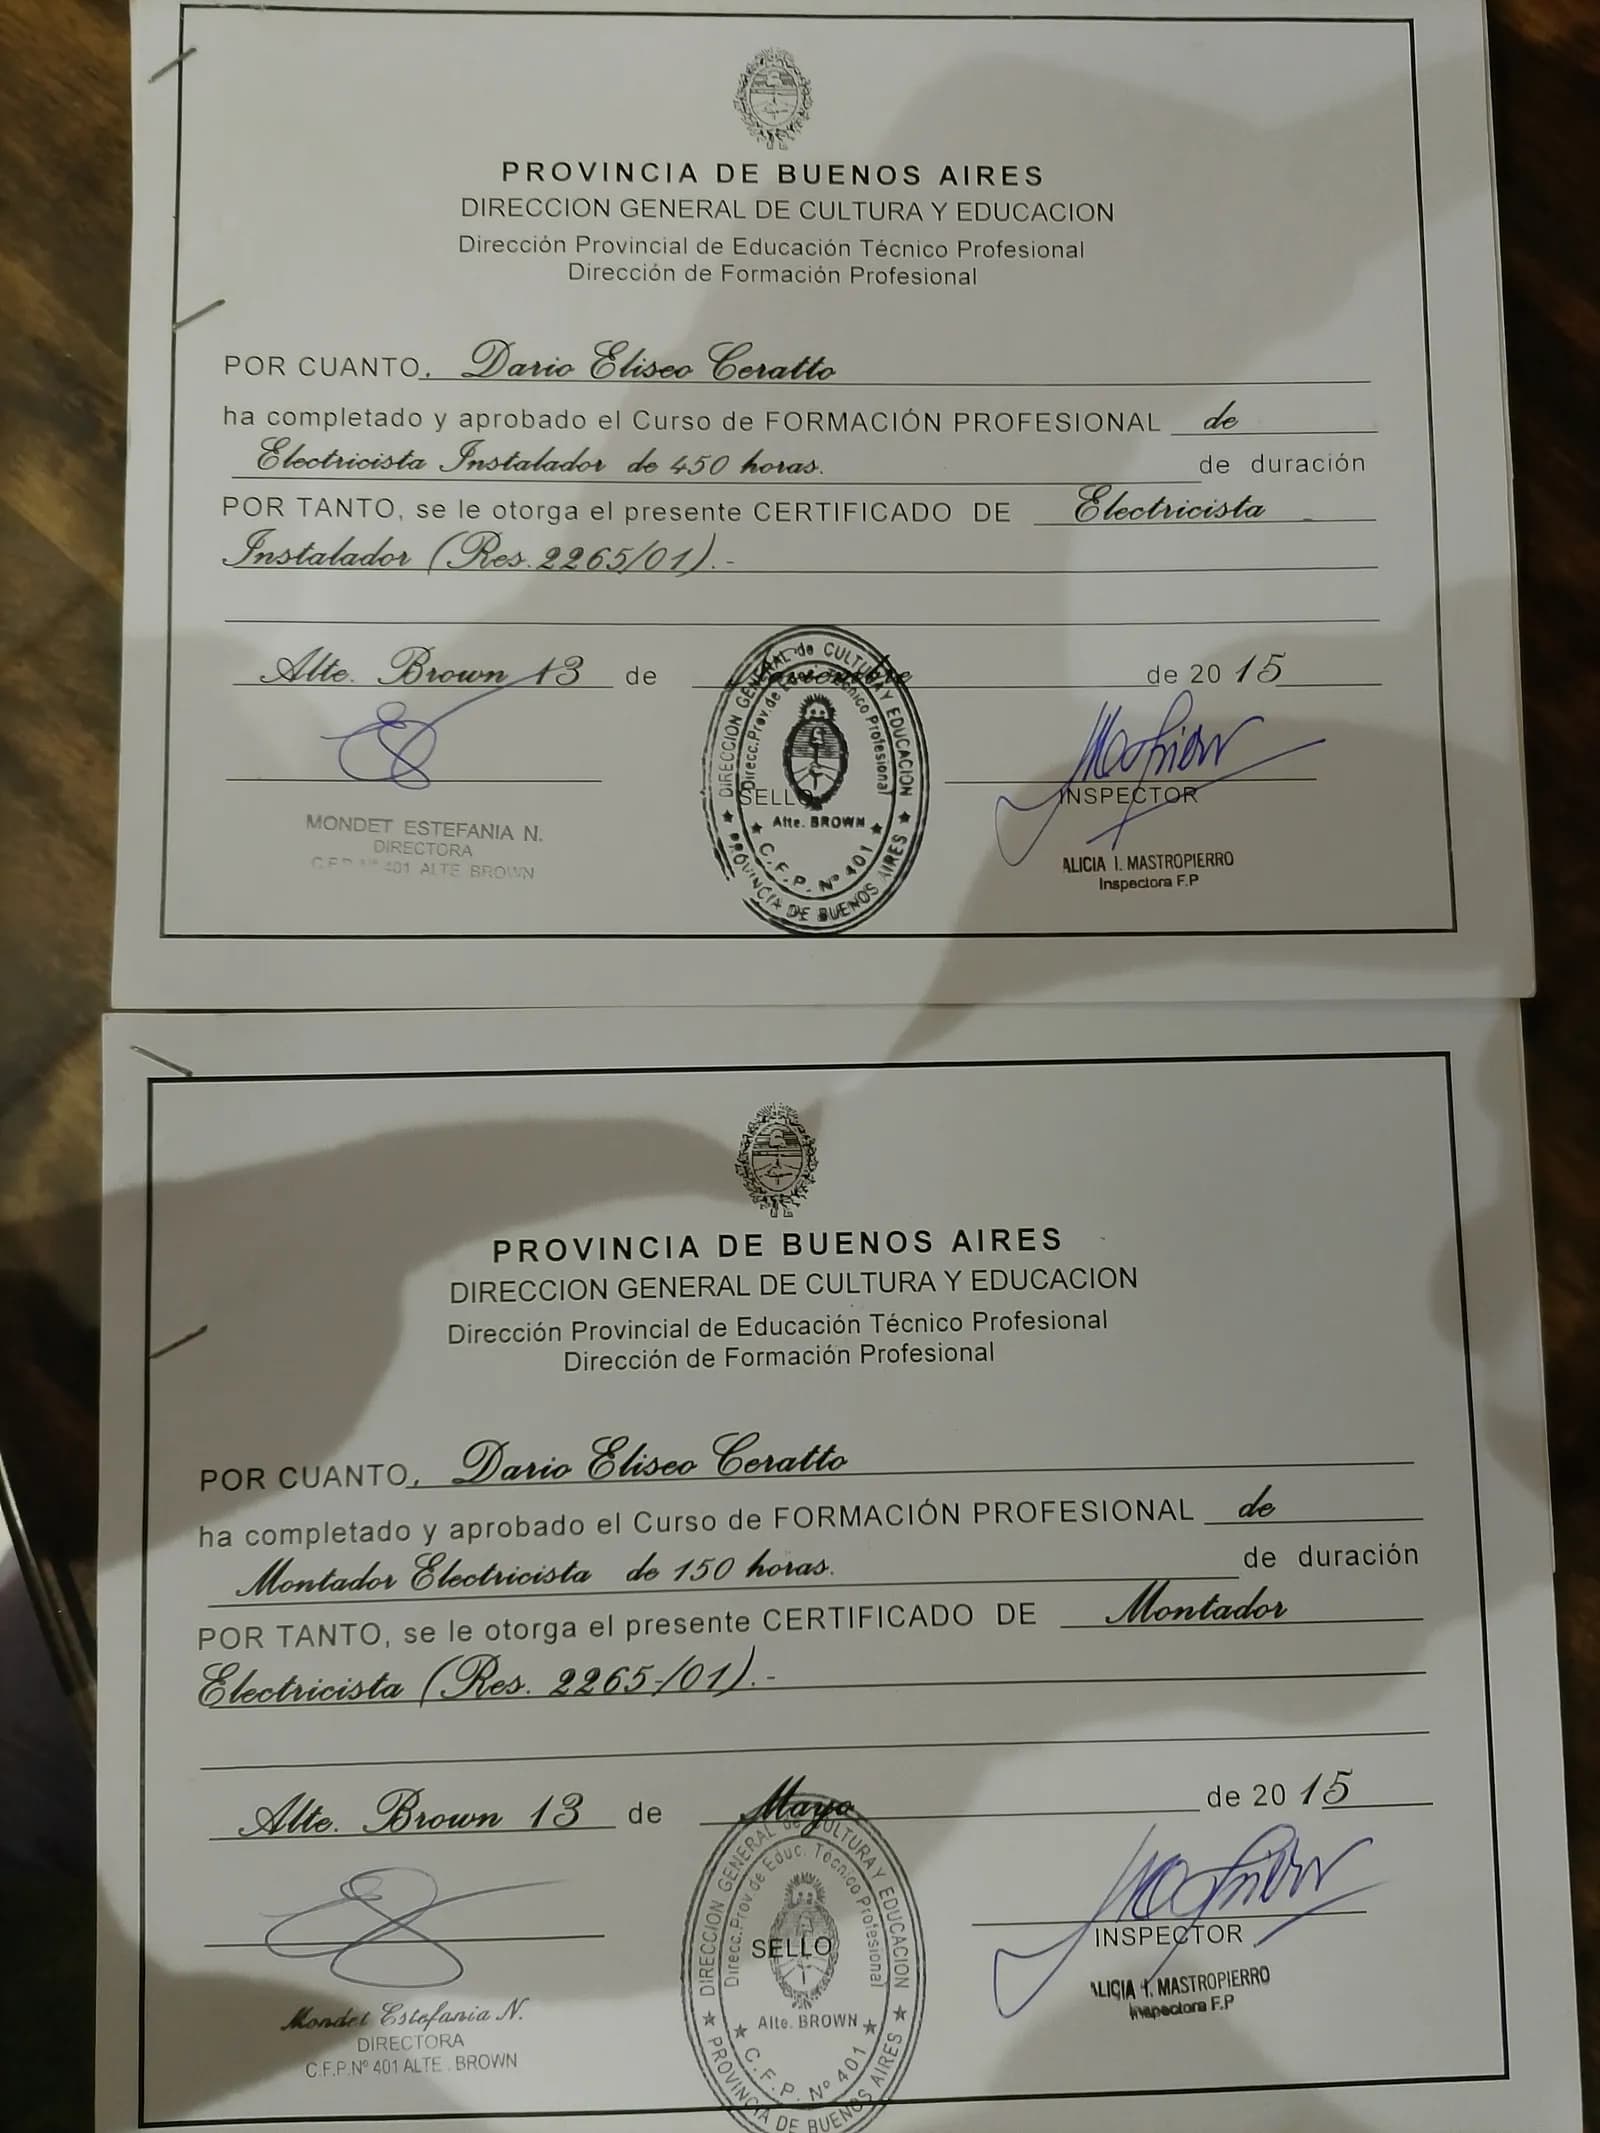 PROVINCIA DE BUENOS AIRES
DIRECCION GENERAL DE CULTURA Y EDUCACION
Dirección Provincial de Educación Técnico Profesional
Dirección de Formación Profesional
POR CUANTO, Dario Eliseo Ceratto
ha completado y aprobado el Curso de FORMACIÓN PROFESIONAL de
Electricista Instalador de 450 horas. de duración
POR TANTO, se le otorga el presente CERTIFICADO DE Electricista
Instalador (Res. 2265/01).-
Alte. Brown 13 de Noviembre de 2015
SELLO
INSPECTOR
MONDET ESTEFANIA N.
DIRECTORA
C.F.P. Nº 401 ALTE BROWN
DIRECCION GENERAL de CULTURA Y EDUCACION
Direcc.Prov.de Educ. Técnico Profesional
Alte. BROWN
C.F.P. Nº 401
PROVINCIA DE BUENOS AIRES
ALICIA I. MASTROPIERRO
Inspectora F.P
PROVINCIA DE BUENOS AIRES
DIRECCION GENERAL DE CULTURA Y EDUCACION
Dirección Provincial de Educación Técnico Profesional
Dirección de Formación Profesional
POR CUANTO, Dario Eliseo Ceratto
ha completado y aprobado el Curso de FORMACIÓN PROFESIONAL de
Montador Electricista de 150 horas. de duración
POR TANTO, se le otorga el presente CERTIFICADO DE Montador
Electricista (Res. 2265/01).-
Alte. Brown 13 de Mayo de 2015
SELLO
INSPECTOR
Mondet Estefania N.
DIRECTORA
C.F.P.Nº 401 ALTE . BROWN
DIRECCION GENERAL de CULTURA Y EDUCACION
Direcc.Prov.de Educ. Técnico Profesional
Alte. BROWN
C.F.P. Nº 401
PROVINCIA DE BUENOS AIRES
ALICIA I. MASTROPIERRO
Inspectora F.P